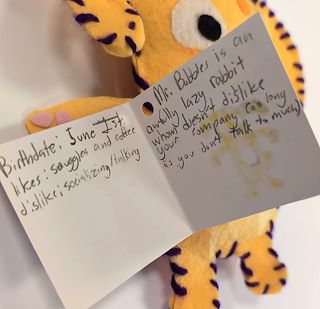 Birthdate: June 1st
likes: snuggles and coffee
dislike: socializing/talking
Mr. Bubbles is an
awfully lazy rabbit
whom doesn't dislike
your company (as long
as you don't talk to much)